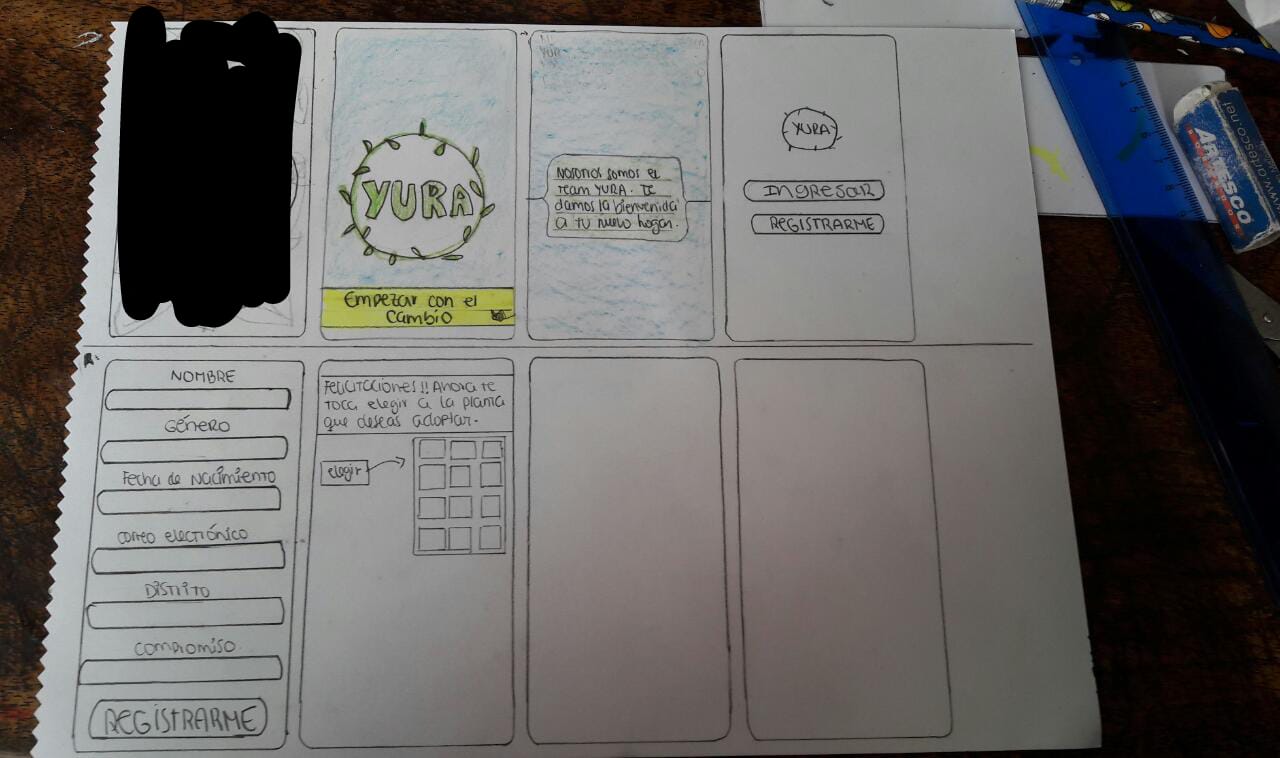 YURA
Empezar con el
cambio
Nosotros somos el
Team YURA. Te
damos la bienvenida
a tu nuevo hogar.
YURA
INGRESAR
REGISTRARME
NOMBRE
GÉNERO
Fecha de Nacimiento
correo electrónico
DISTRITO
COMPROMISO
REGISTRARME
FELICITACIONES!! Ahora te
toca elegir a la planta
que deseas adoptar.
elegir
ARTESCO
www.artesco.net